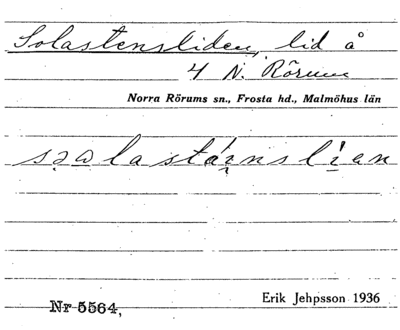 Solastensliden, lid å
4 N. Rörum
Norra Rörums sn., Frosta hd., Malmöhus län
Nr 5564,
Erik Jehpsson 1936